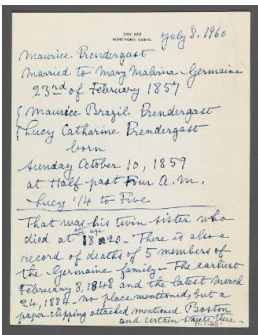 July 8. 1960
Maurice Prendergast
Married to Mary Malvina Germaine
23rd of February 1857
Maurice Brazil Prendergast
Lucy Catharine Prendergast
born
Sunday October 10, 1859
at Half past Four A.M.
Lucy 1/4 to Five
That was his twin sister who
died at the age 18 20 - There is also a
record of deaths of 5 members of
the Germaine family - The earliest
February 8, 1848 and the latest March
24, 1884. no place mentioned, but a
paper clipping attached mentioned Boston
and certain